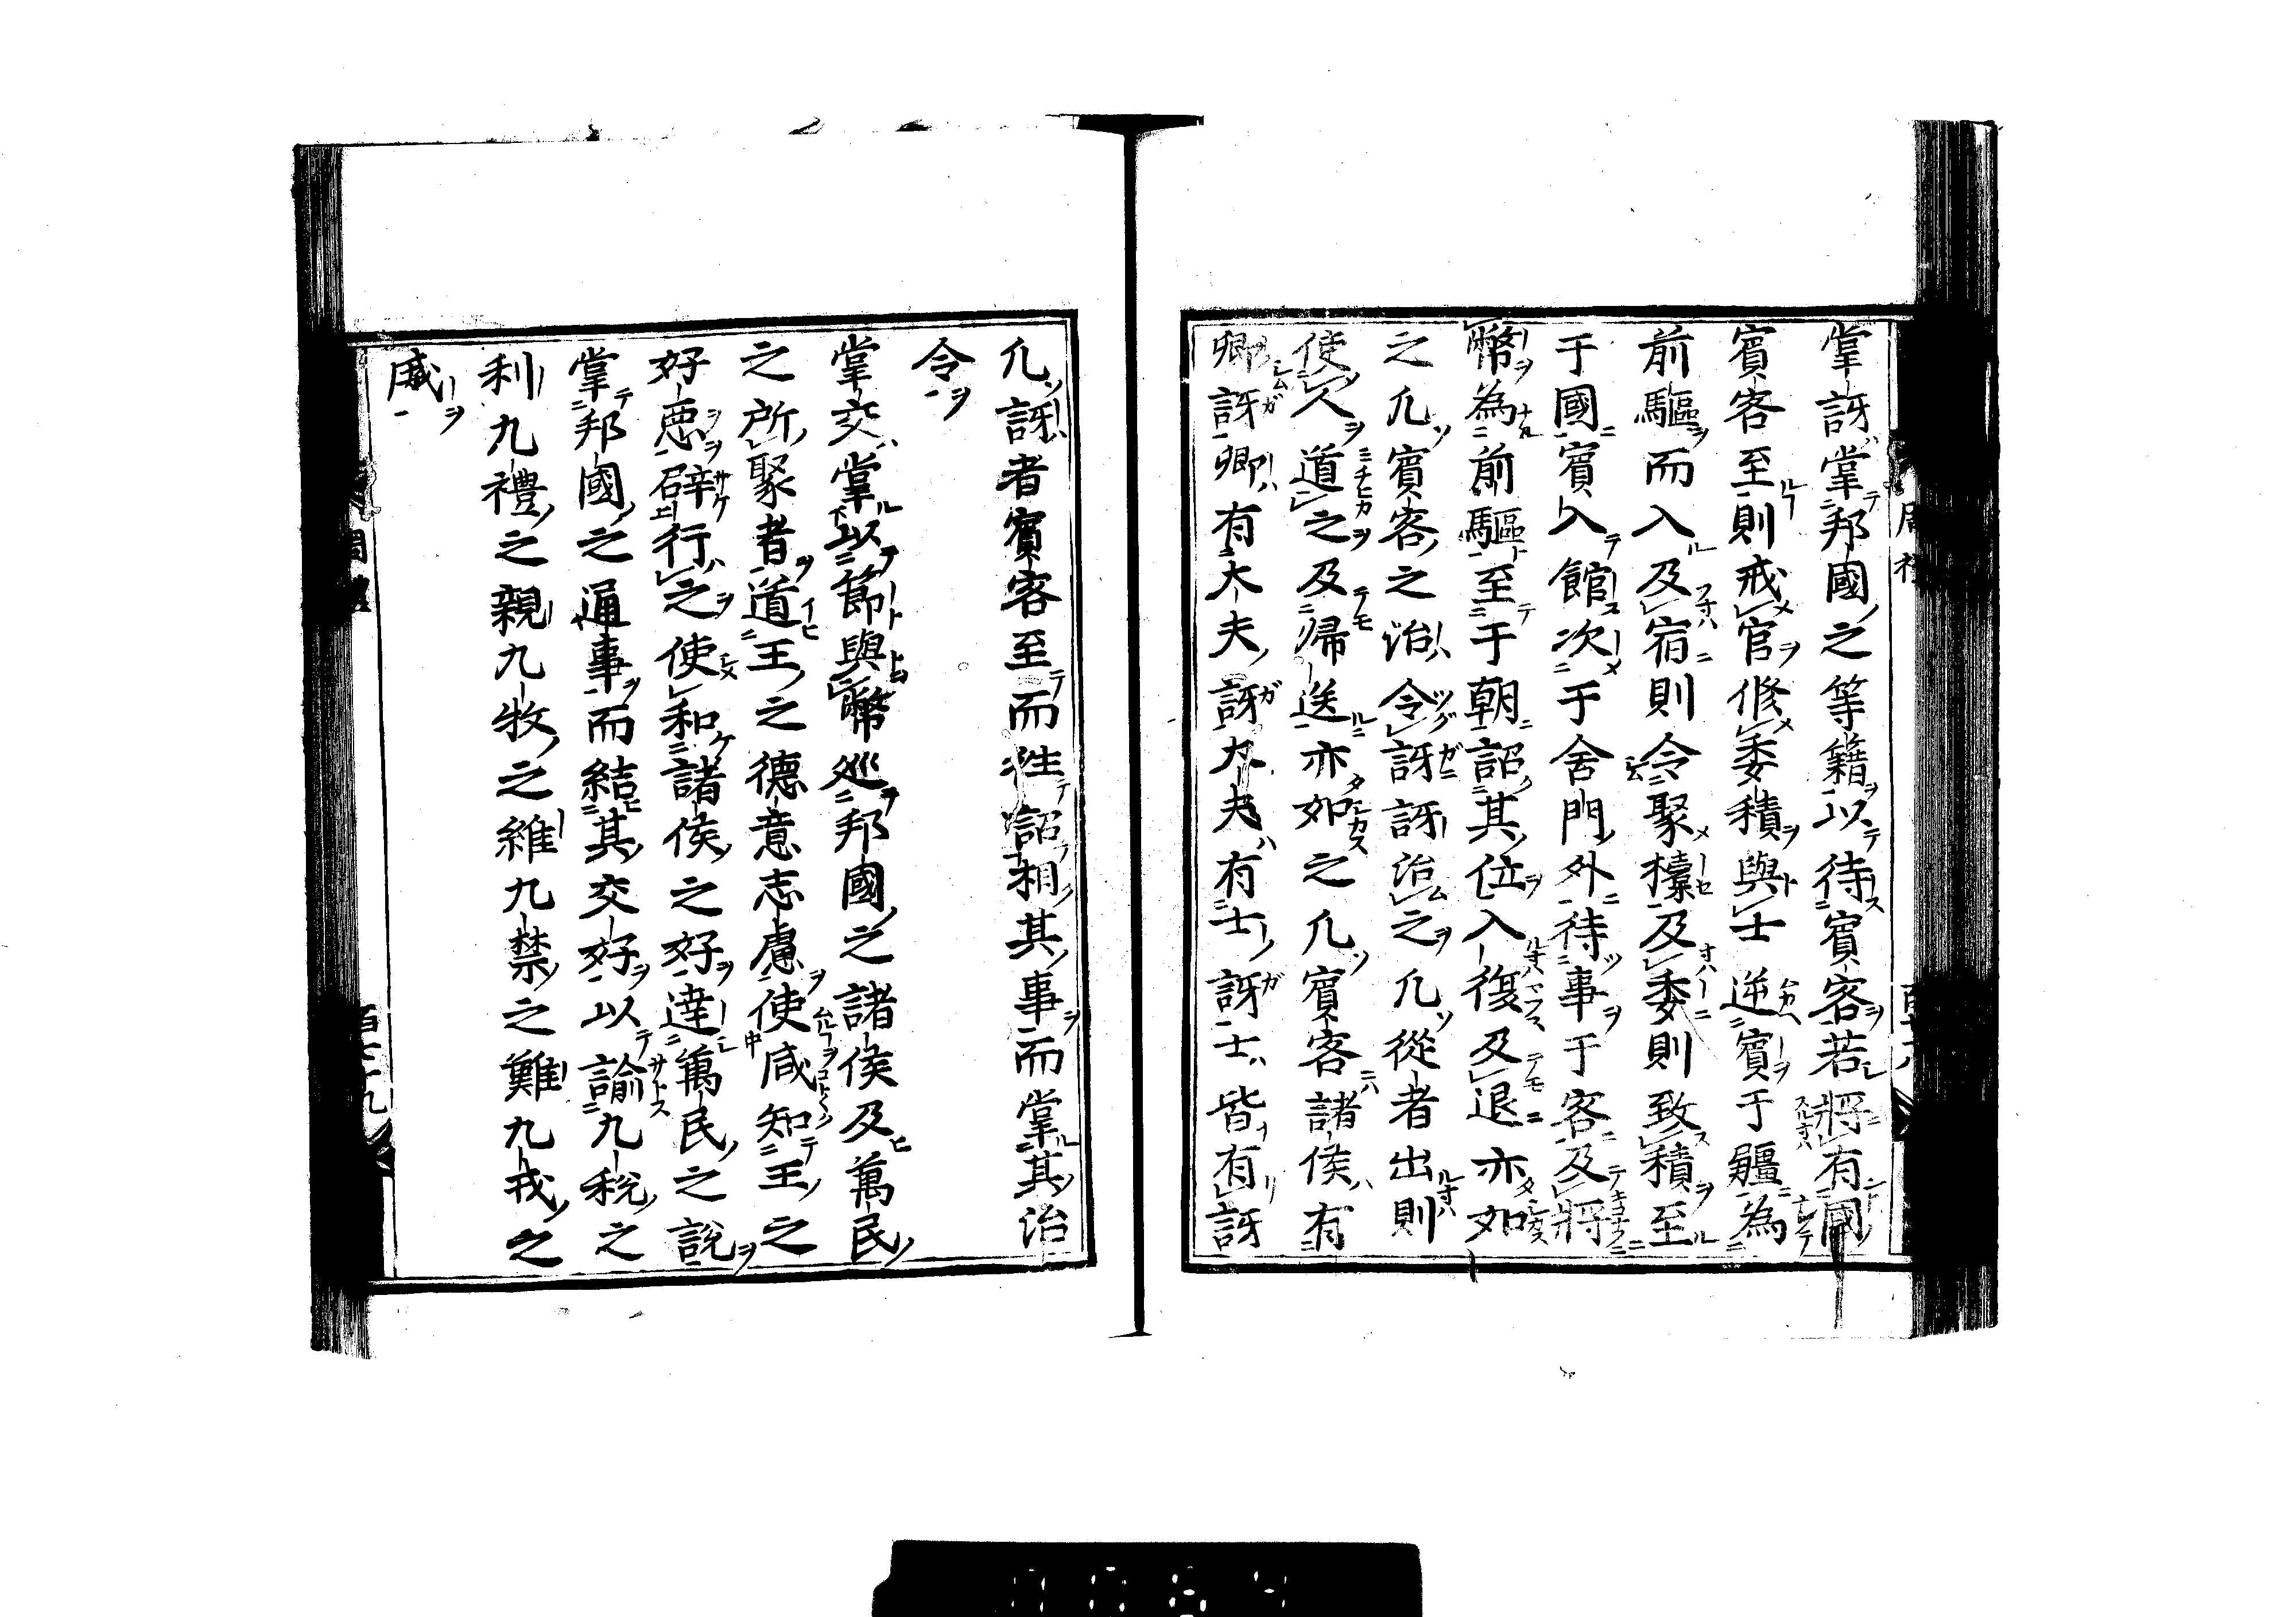 掌訝掌邦國之等籍以待賓客若將有國
賓客至則戒官修委積與士逆賓于疆為
前驅而入及宿則令聚𣝔及委則致積至
于國賓入館次于舍門外待事于客及將
幣為前驅至于朝詔其位入復及退亦如
之凢賓客之治令訝訝治之凢從者出則
使人道之及帰送亦如之凢賓客諸侯有
卿訝卿有大夫訝大夫有士訝士皆有訝
凢訝者賓客至而徃詔相其事而掌其治
令
掌交掌以節與幣巡邦國之諸侯及萬民
之所聚者道王之德意志慮使咸知王之
好惡辟行之使和諸侯之好達萬民之說
掌邦國之通事而結其交好以諭九稅之
利九禮之親九牧之維九禁之難九戎之
威